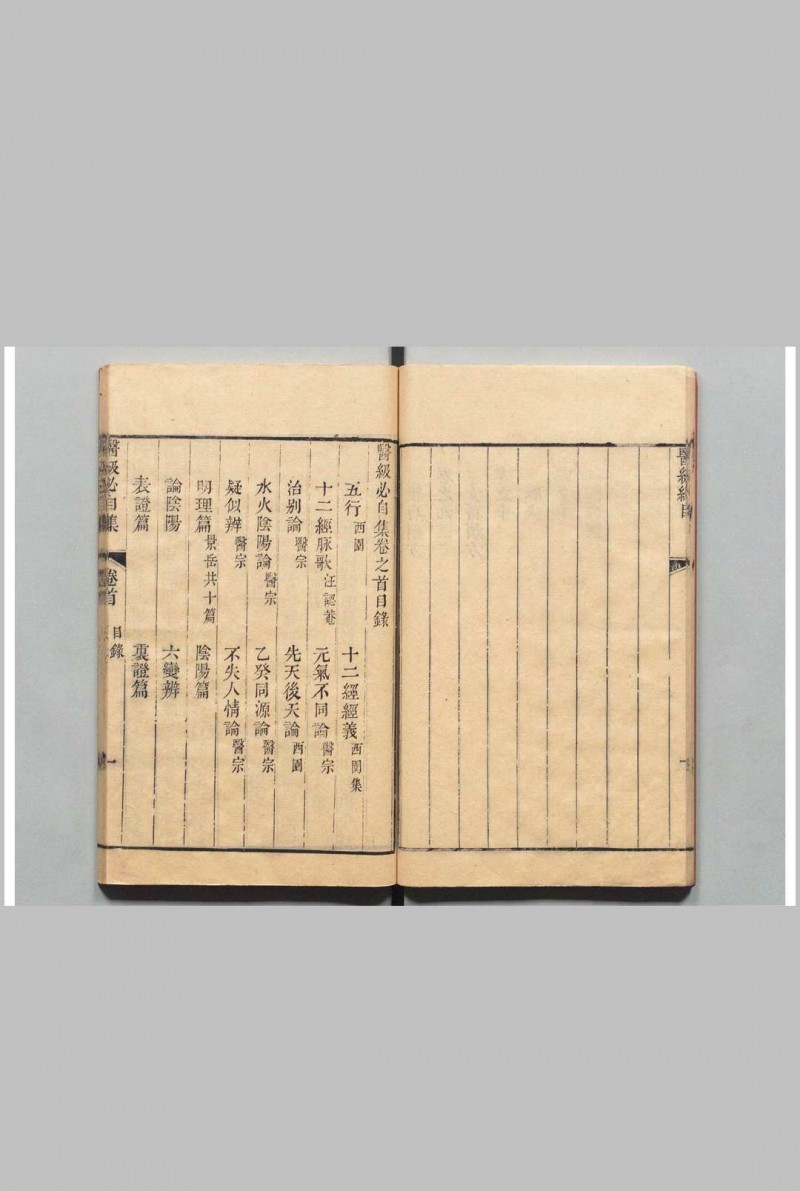 醫級總目
醫級必自集卷之首目錄
五行西圃 十二經經義西圃集
十二經脉歌汪訒菴 元氣不同論醫宗
治別論醫宗 先天後天論西圃
水火陰陽論醫宗 乙癸同源論醫宗
疑似辨醫宗 不失人情論醫宗
明理篇景岳共十篇 陰陽篇
論陰陽 六變辨
表證篇 裏證篇
醫級必自集 卷首 目錄 一